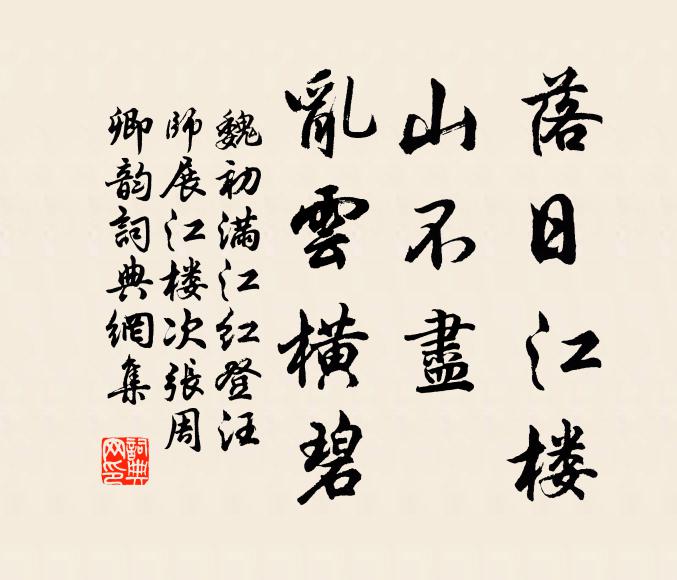 落日江楼
山不盡
亂雲橫碧
魏初滿江红登汪
師展江楼次張周
卿韵詞典網集
詞典网印